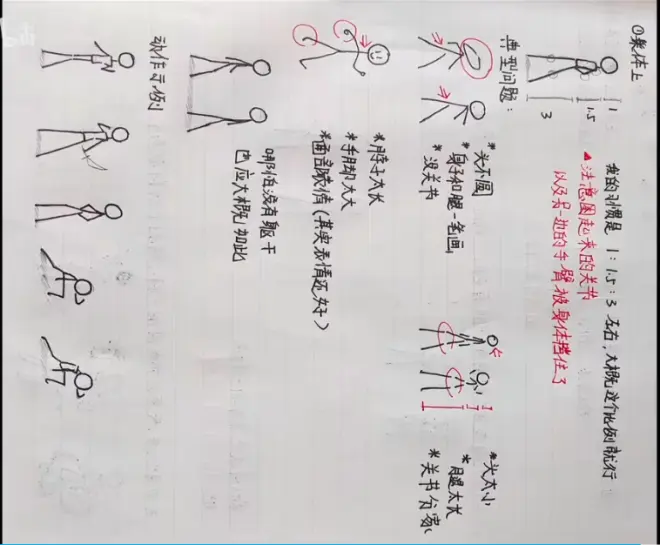 ①整体上
1
1.5
3
我的习惯是 1：1.5：3 左右，大概这个比例就行
▲注意圈起来的关节
以及另一边的手臂被身体挡住了
典型问题：
*头不圆
*身子和腿一笔画
*没关节
*头太小
*腿太长
*关节分家
*脖子太长
*手脚太大
*画部表情（其实表情还好）
哪怕没有躯干
也应大概如此
动作示例